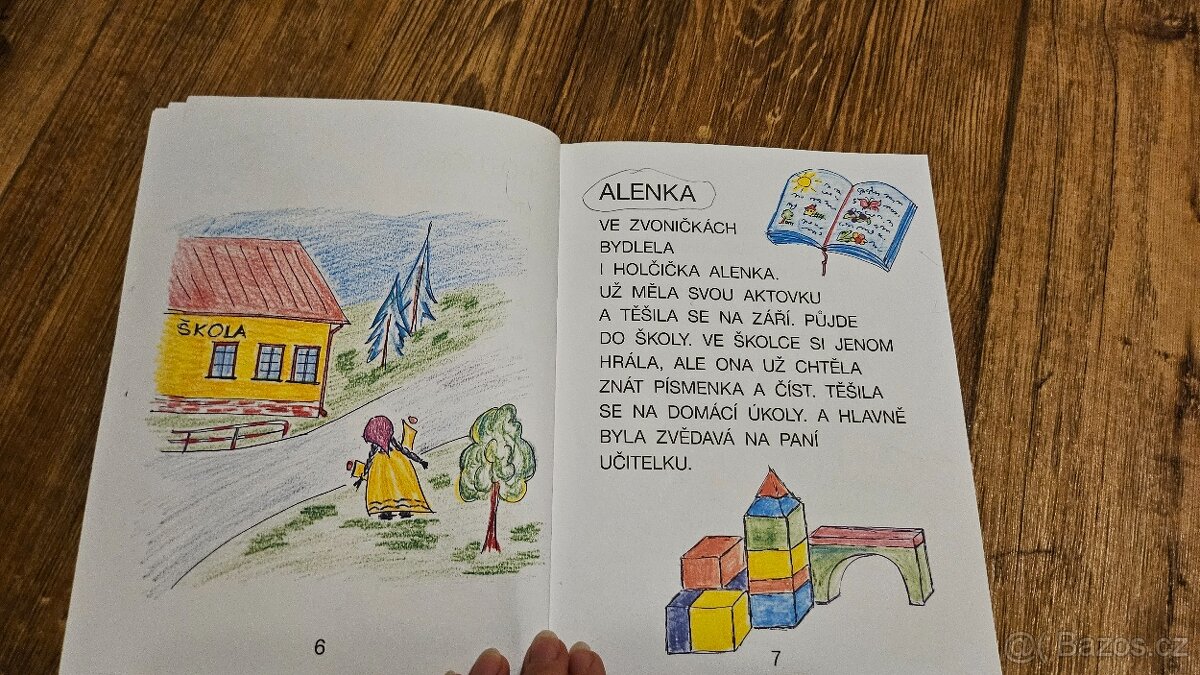 ŠKOLA
6
ALENKA
VE ZVONIČKÁCH
BYDLELA
I HOLČIČKA ALENKA.
UŽ MĚLA SVOU AKTOVKU
A TĚŠILA SE NA ZÁŘÍ. PŮJDE
DO ŠKOLY. VE ŠKOLCE SI JENOM
HRÁLA, ALE ONA UŽ CHTĚLA
ZNÁT PÍSMENKA A ČÍST. TĚŠILA
SE NA DOMÁCÍ ÚKOLY. A HLAVNĚ
BYLA ZVĚDAVÁ NA PANÍ
UČITELKU.
7
Bazos.cz